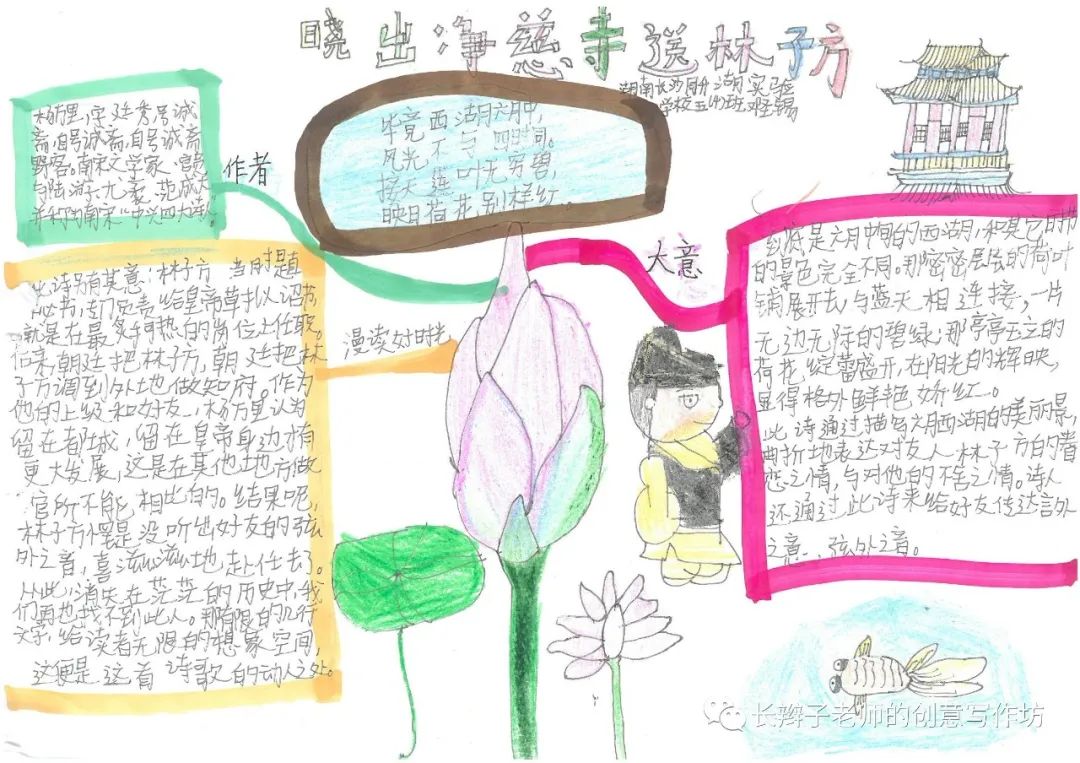 晓出净慈寺送林子方
湖南长沙同升湖实验
学校
毕竟西湖六月中,
风光不与四时同。
接天莲叶无穷碧,
映日荷花别样红。
作者
杨万里,字廷秀,号诚
斋,自号诚斋,自号诚斋
野客。南宋文学家、官员
与陆游、尤袤、范成大
并称为南宋"中兴四大诗人
漫读好时光
此诗另有其意:林子方 当时是
秘书,专门负责给皇帝草拟诏书
就是在最炙手可热的岗位上任职。
后来,朝廷把林子方,朝廷把林
子方调到外地做知府。作为
他的上级和好友,杨万里认为
留在都城,留在皇帝身边才有
更大发展,这是在其他地方做
官所不能相比的。结果呢,
林子方愣是没听出好友的弦
外之音,喜滋滋地赴任去了。
从此,消失在茫茫的历史中,我
们再也找不到此人。那有限的几行
文字,给读者无限的想象空间,
这便是这首诗歌的动人之处。
大意
到底是六月中旬的西湖,和其它时节
的景色完全不同。那密密层层的荷叶
铺展开去,与蓝天相连接,一片
无边无际的碧绿;那亭亭玉立的
荷花绽蕾盛开,在阳光的辉映,
显得格外鲜艳娇红。
此诗通过描写六月西湖的美丽景,
曲折地表达对友人林子方的眷
恋之情,与对他的不舍之情。诗人
还通过此诗来给好友传达言外
之意、弦外之音。
长辫子老师的创意写作坊